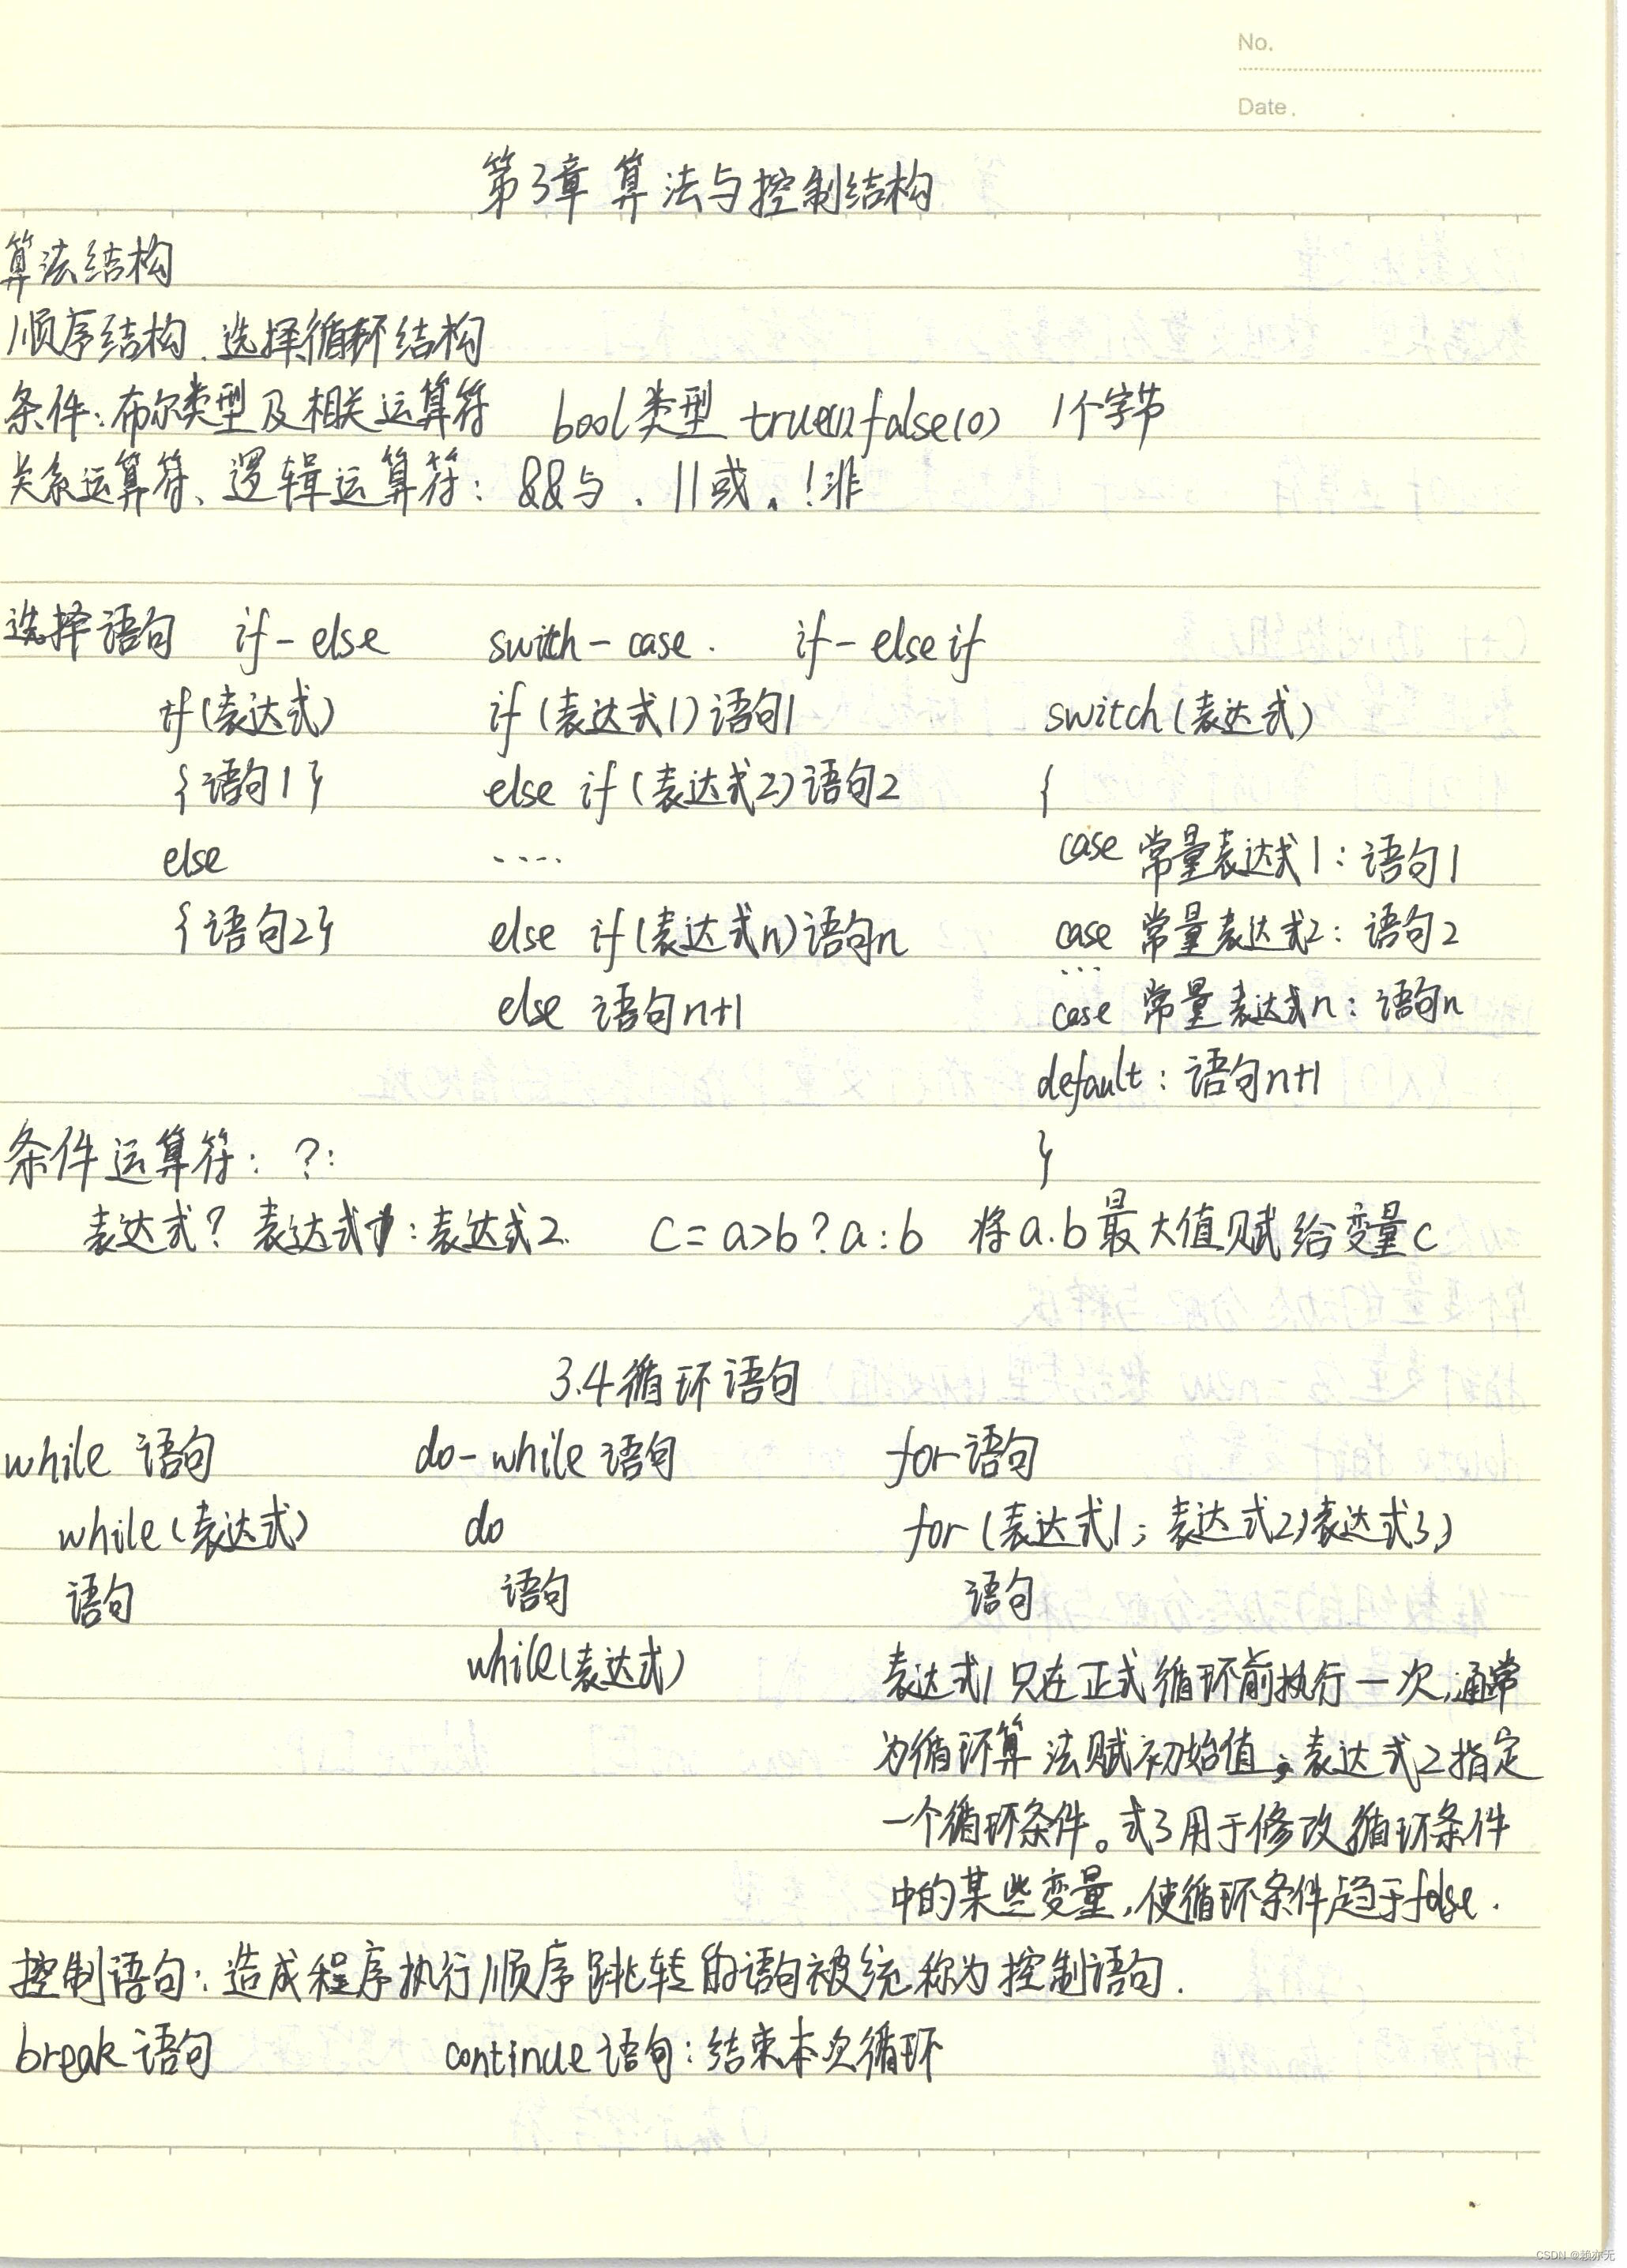 No.
Date.
第3章 算法与控制结构
算法结构
顺序结构、选择循环结构
条件:布尔类型及相关运算符 bool类型 true(1) false(0) 1个字节
关系运算符、逻辑运算符: &&与、||或、!非
选择语句 if-else switch-case. if-else if
if(表达式) if(表达式1)语句1 switch(表达式)
{语句1} else if(表达式2)语句2 {
else .... case 常量表达式1:语句1
{语句2} else if(表达式n)语句n case 常量表达式2:语句2
...
else 语句n+1 case 常量表达式n:语句n
default:语句n+1
条件运算符: ?: }
表达式?表达式1:表达式2. c=a>b?a:b 将a.b最大值赋给变量c
3.4循环语句
while 语句 do-while 语句 for语句
while(表达式) do for(表达式1;表达式2;表达式3;)
语句 语句 语句
while(表达式) 表达式1只在正式循环前执行一次,通常
为循环算法赋初始值;表达式2指定
一个循环条件。式3用于修改循环条件
中的某些变量,使循环条件趋于false.
控制语句:造成程序执行顺序跳转的语句被统称为控制语句.
break语句 continue语句:结束本次循环
CSDN @赖亦无